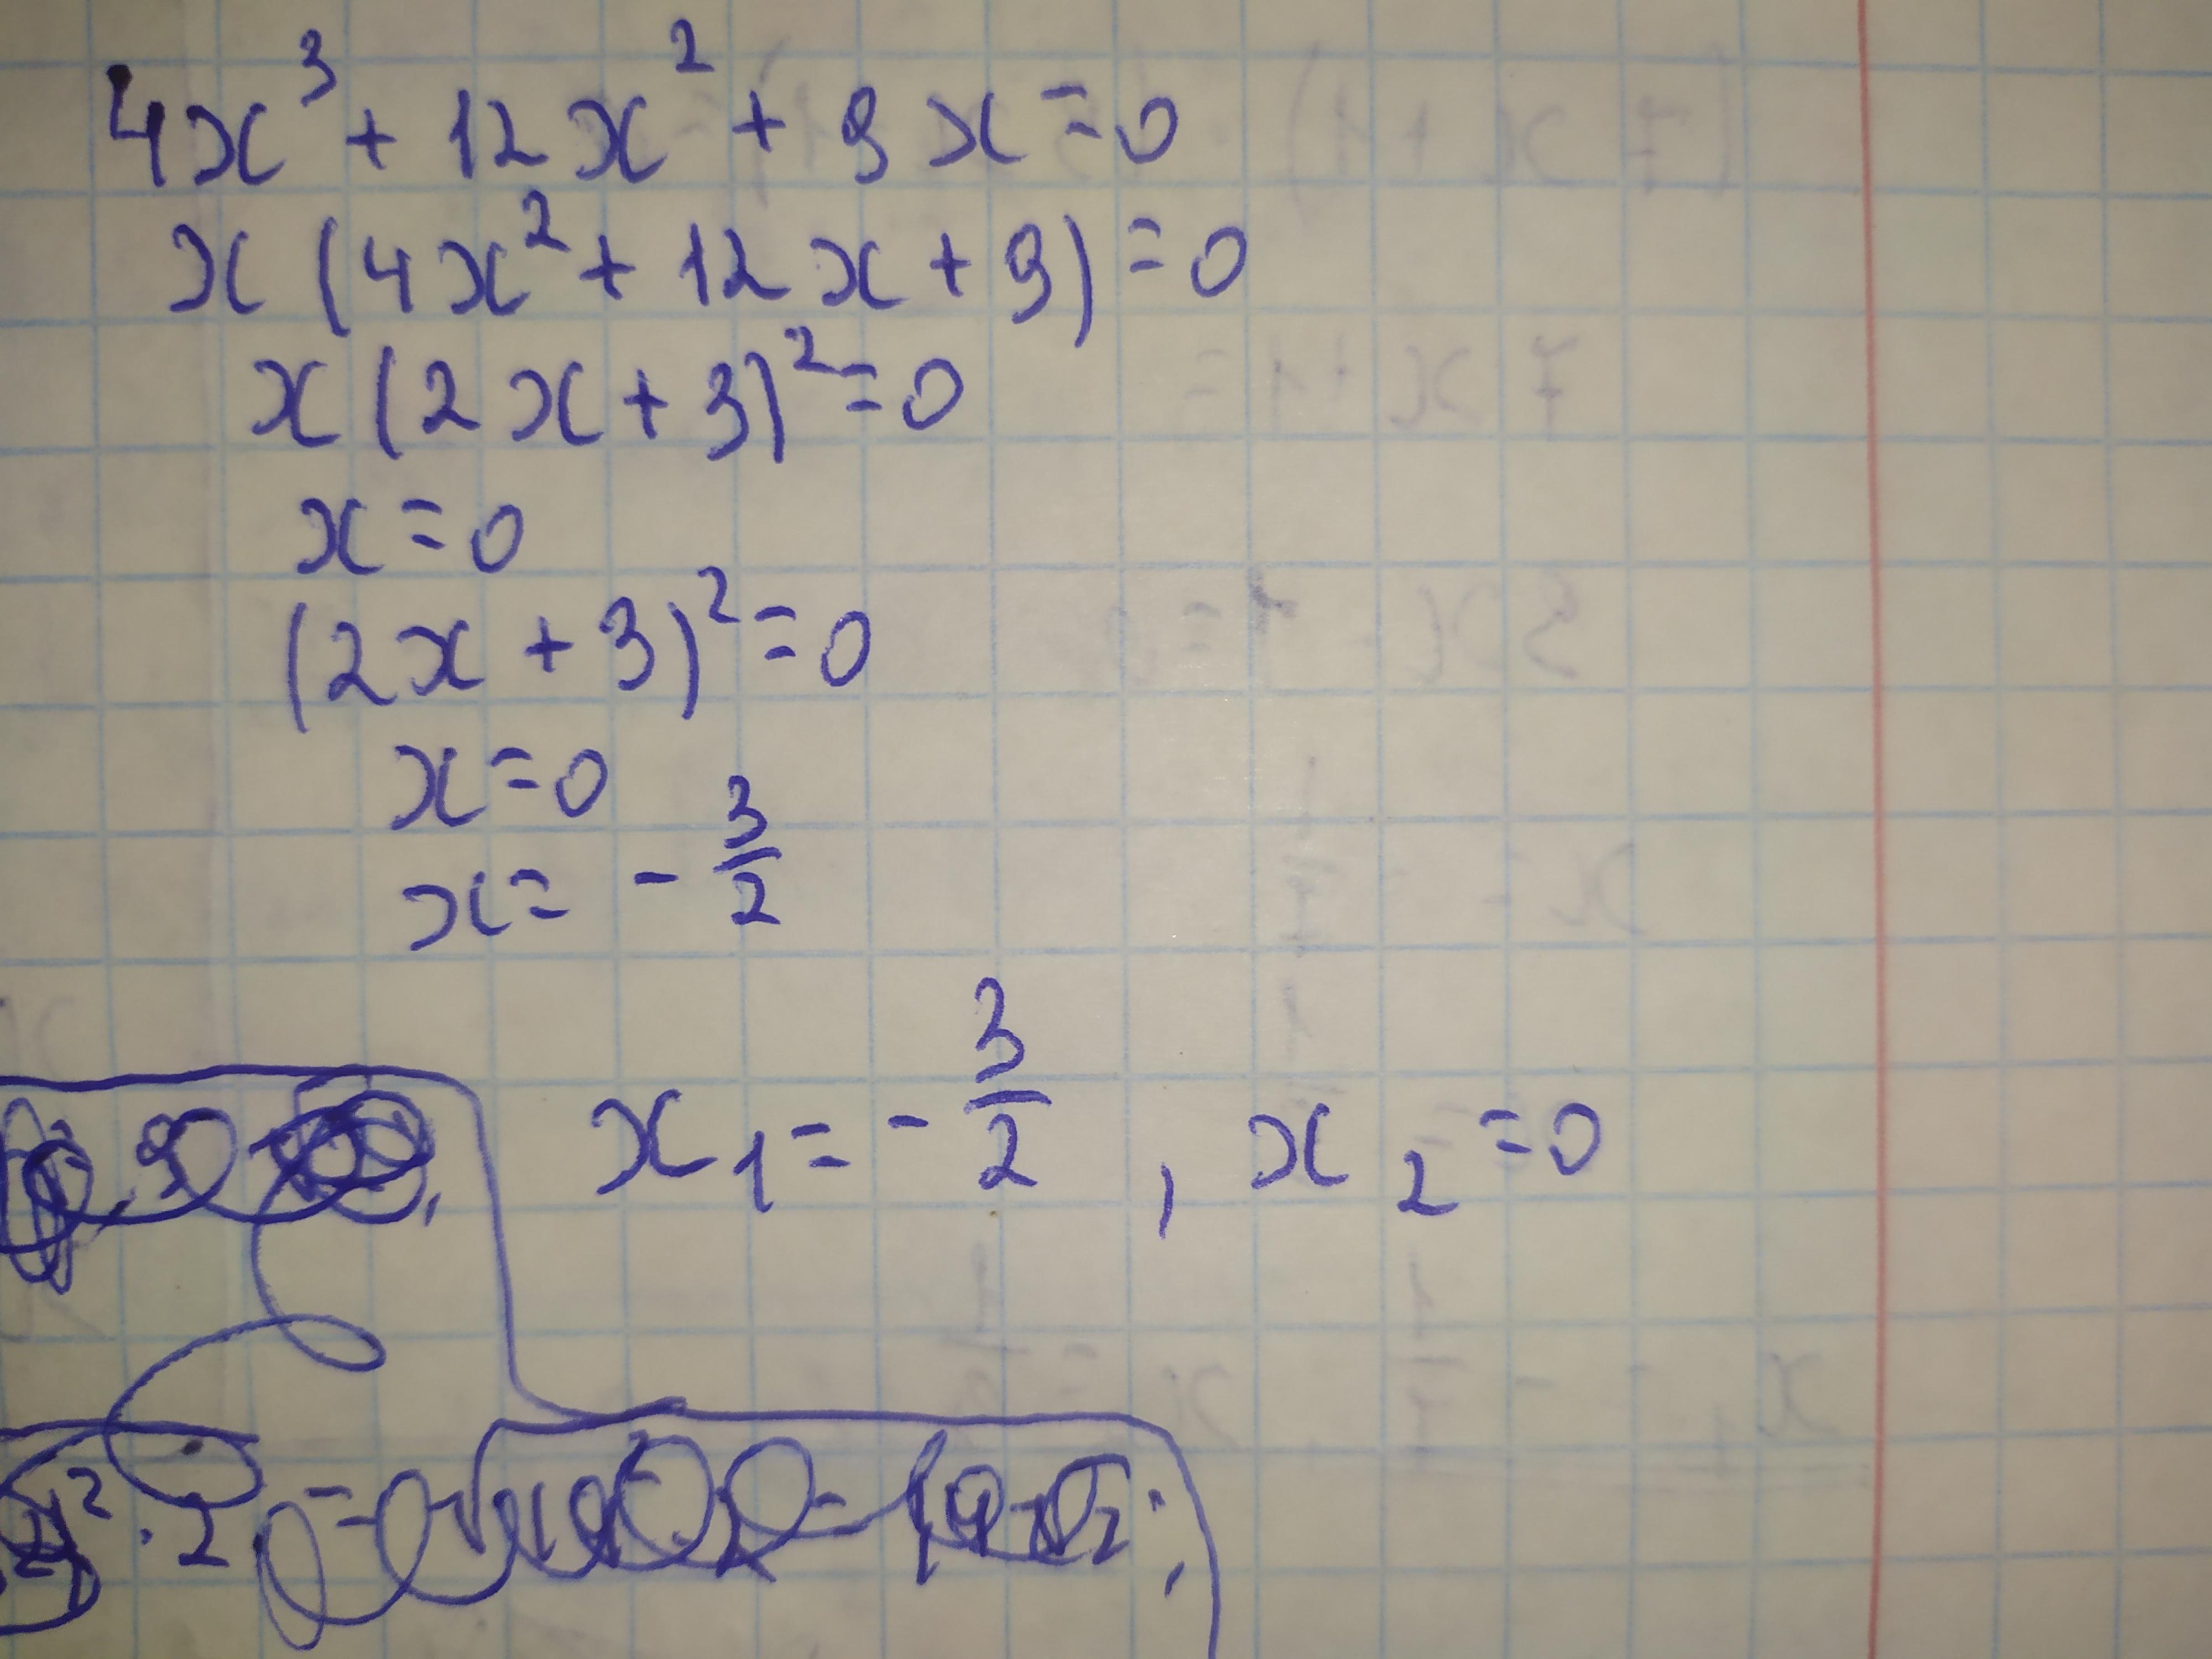 4x³ + 12x² + 9x = 0
x(4x² + 12x + 9) = 0
x(2x + 3)² = 0
x = 0
(2x + 3)² = 0
x = 0
x = - 3/2
x₁ = - 3/2 , x₂ = 0